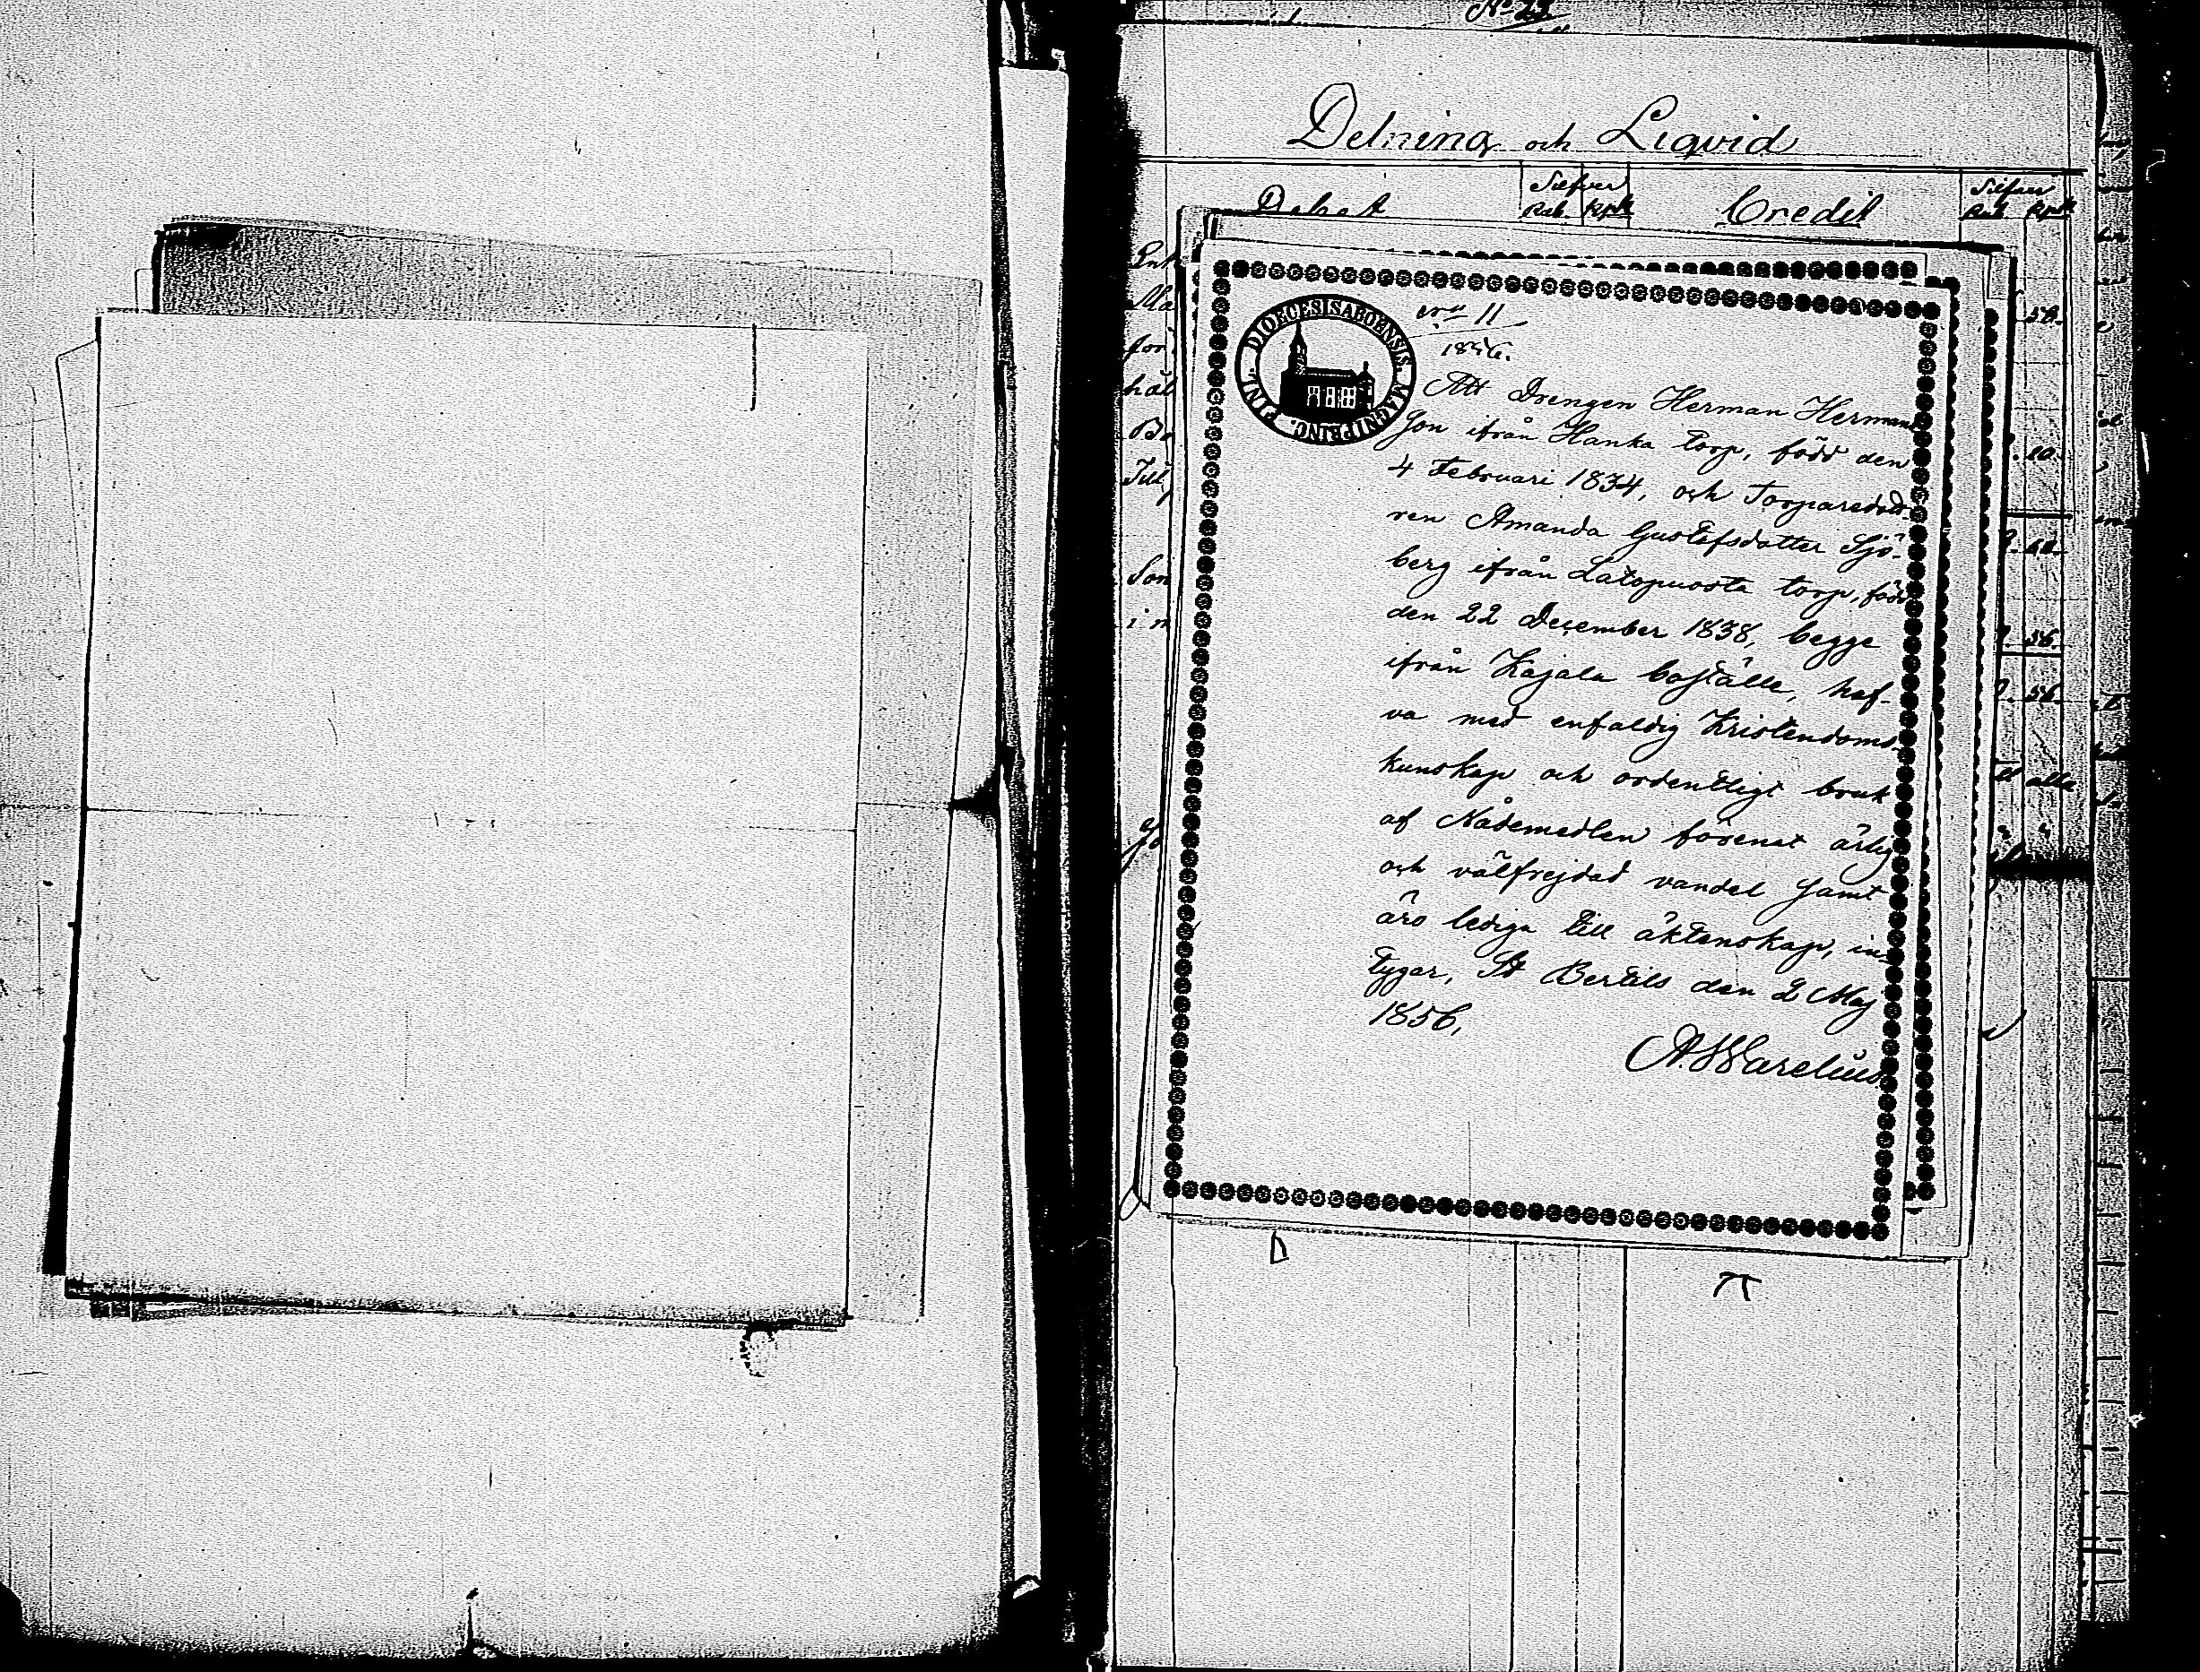 No 23
Delning och Liqvid
Debet Silfver Rub. Kpk Credit Silfver Rub. Kpk
DIOECESIS ABOENSIS MAGNI PRINC. FINL.
No 11
1856.
Att Drengen Herman Herman
son ifrån Hanka torp, född den
4 Februari 1834, och Torparedot-
ren Amanda Gustafsdotter Sjö-
berg ifrån Latopuosta torp, född
den 22 December 1838, begge
ifrån Kajala boställe, haf-
va med enfaldig Kristendoms-
kunskap och ordentligt bruk
af Nådemedlen förenat ärlig
och välfrejdad vandel samt
äro lediga till äktenskap, in-
tygar, St Bertils den 2 Maj
1856,
A. Warelius